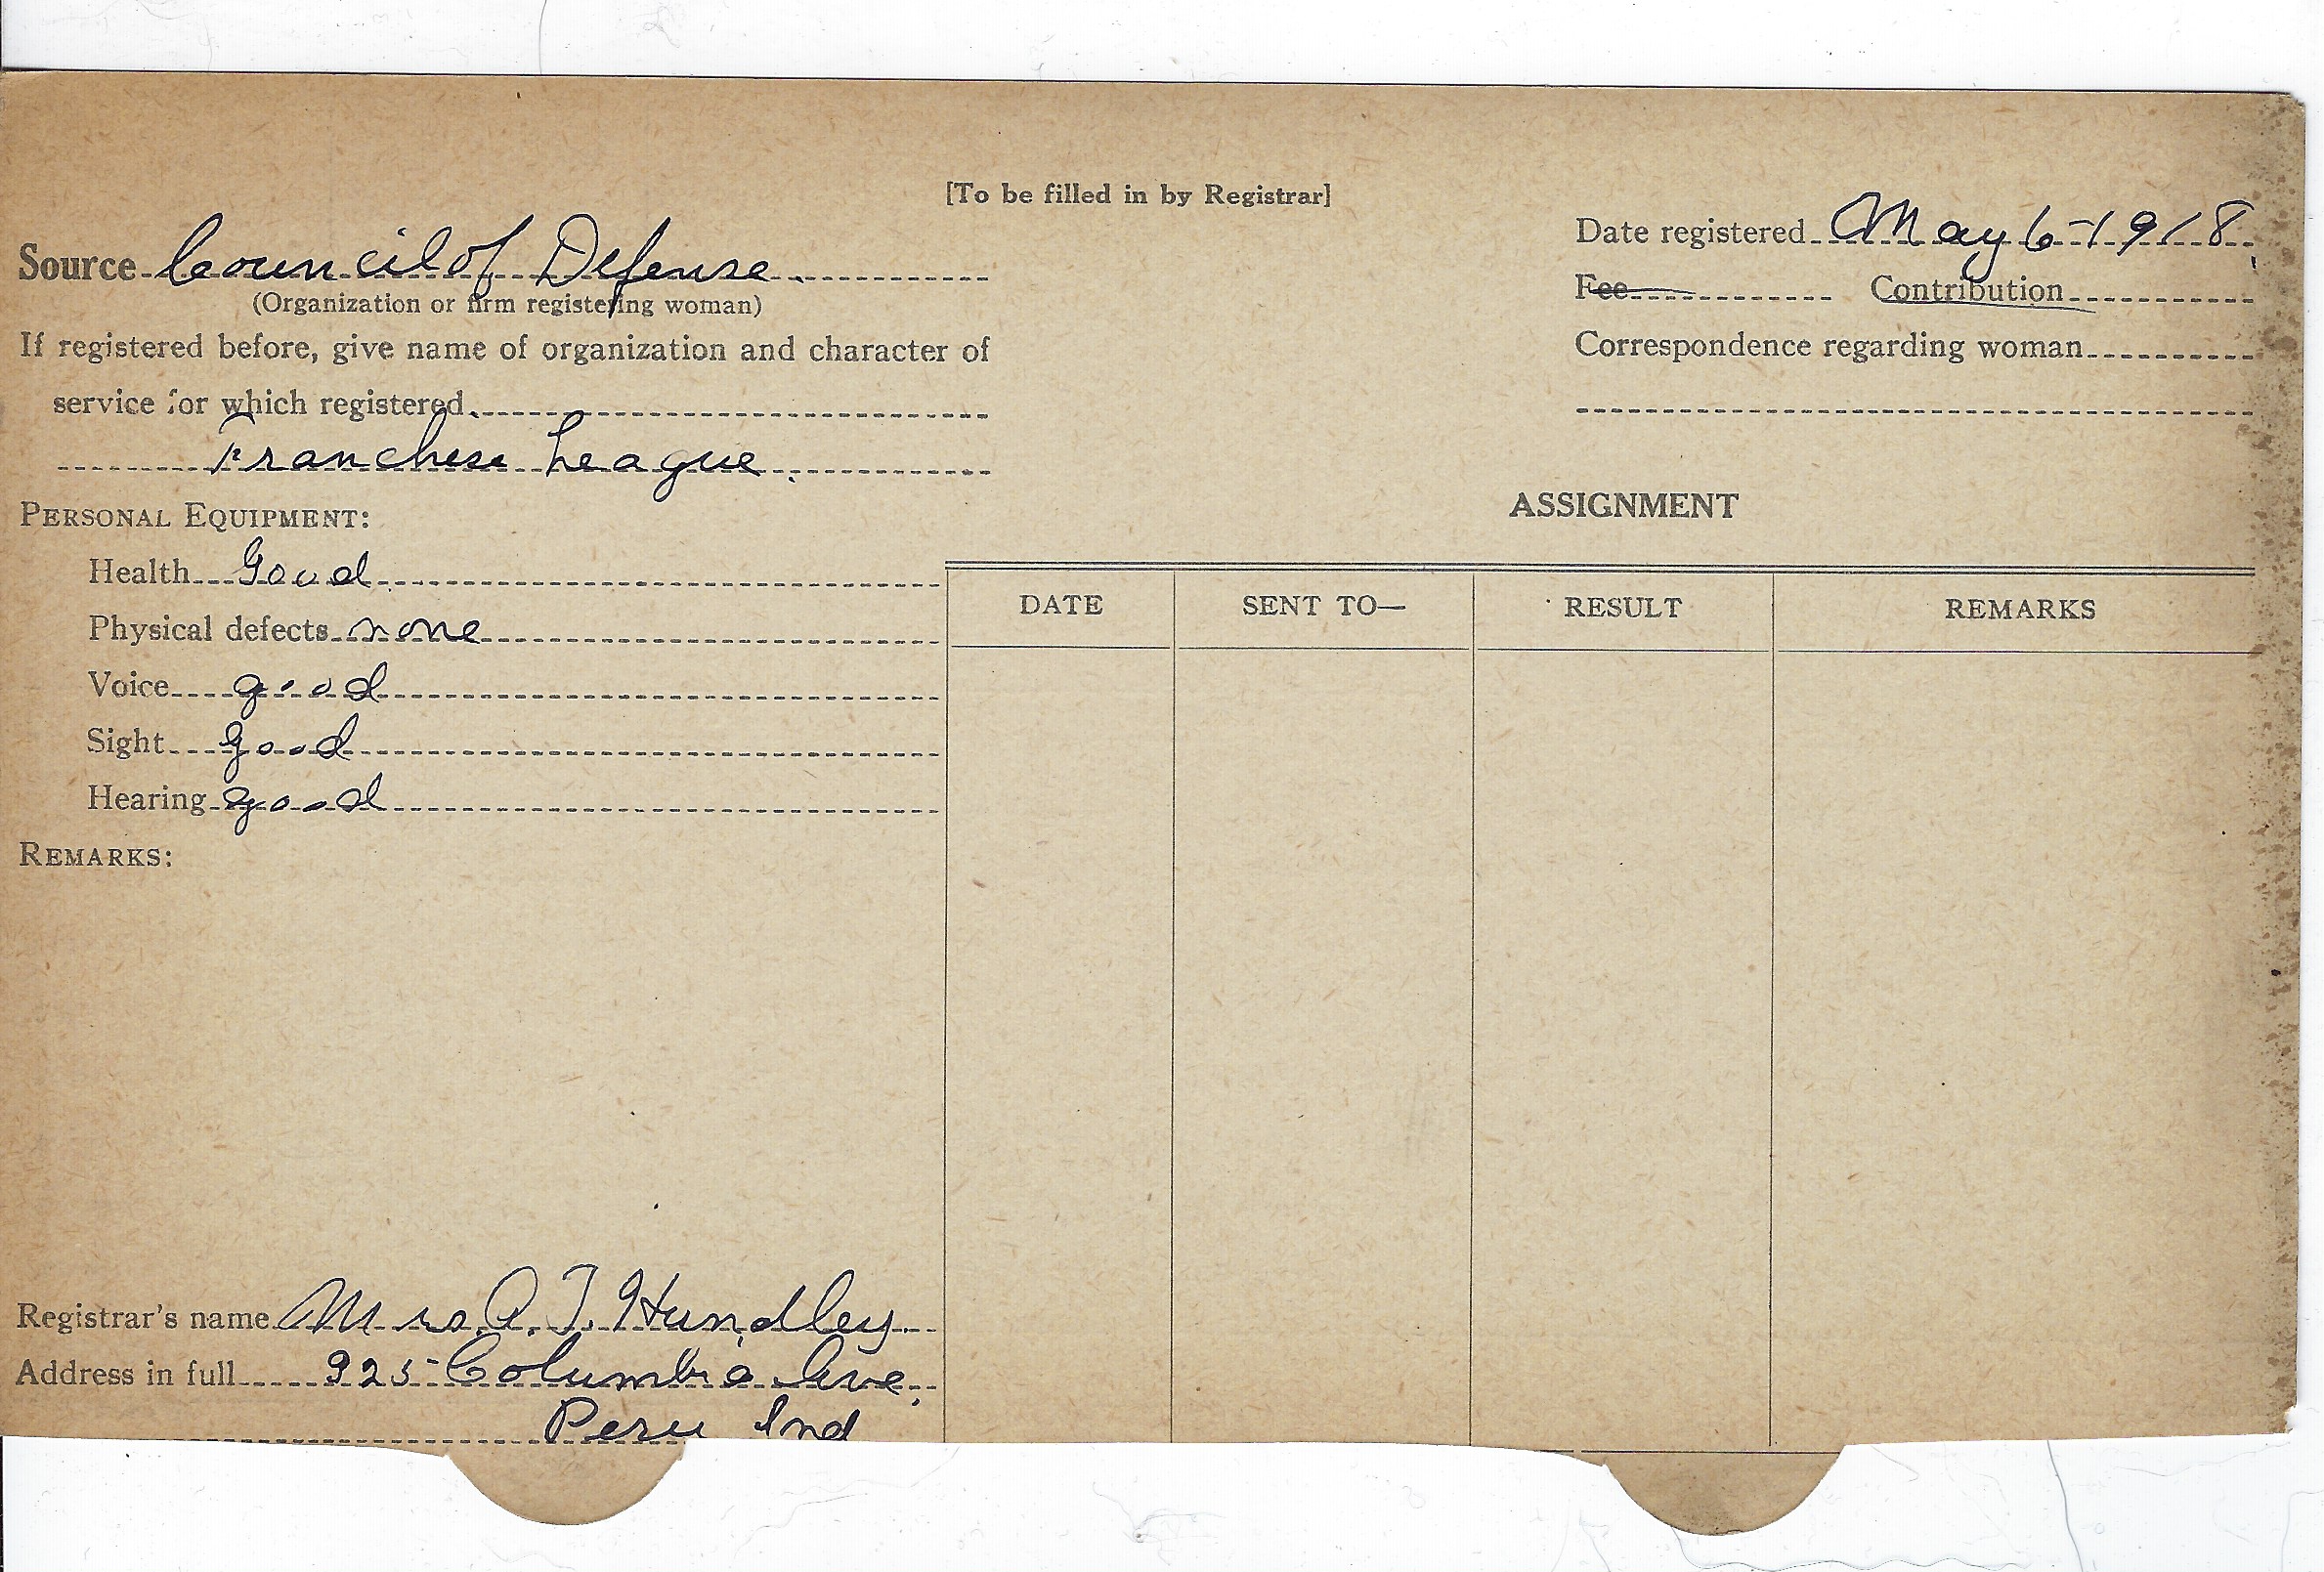 [To be filled in by Registrar]
Source Council of Defense.
(Organization or firm registering woman)
If registered before, give name of organization and character of
service for which registered.
Franchese League.
Date registered May 6-1918.
Fee Contribution
Correspondence regarding woman
PERSONAL EQUIPMENT:
Health Good
Physical defects none
Voice good
Sight good
Hearing good
REMARKS:
ASSIGNMENT
DATE SENT TO— RESULT REMARKS
Registrar's name Mrs. A. T. Hundley.
Address in full 925 Columbia Ave.
Peru Ind